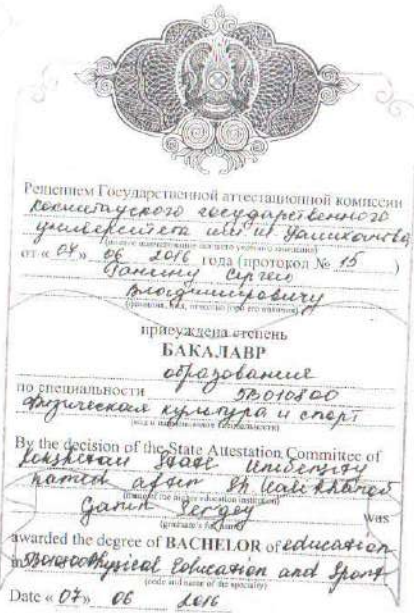 Решением Государственной аттестационной комиссии
Кокшетауского государственного
университета им Ш Уалиханова
от « 07 » 06 2016 года (протокол № 15 )
Ганину Сергею
Владимировичу
присуждена степень
БАКАЛАВР
образование
по специальности 5В010800
Физическая культура и спорт
By the decision of the State Attestation Committee of
Kokshetau State University
named after Sh Ualikhanov
(name of the higher education institution)
Ganin Sergey was
(graduate's full name)
awarded the degree of BACHELOR of education
in 5B010800 Physical Education and Sport
(code and name of the specialty)
Date « 07 » 06 2016